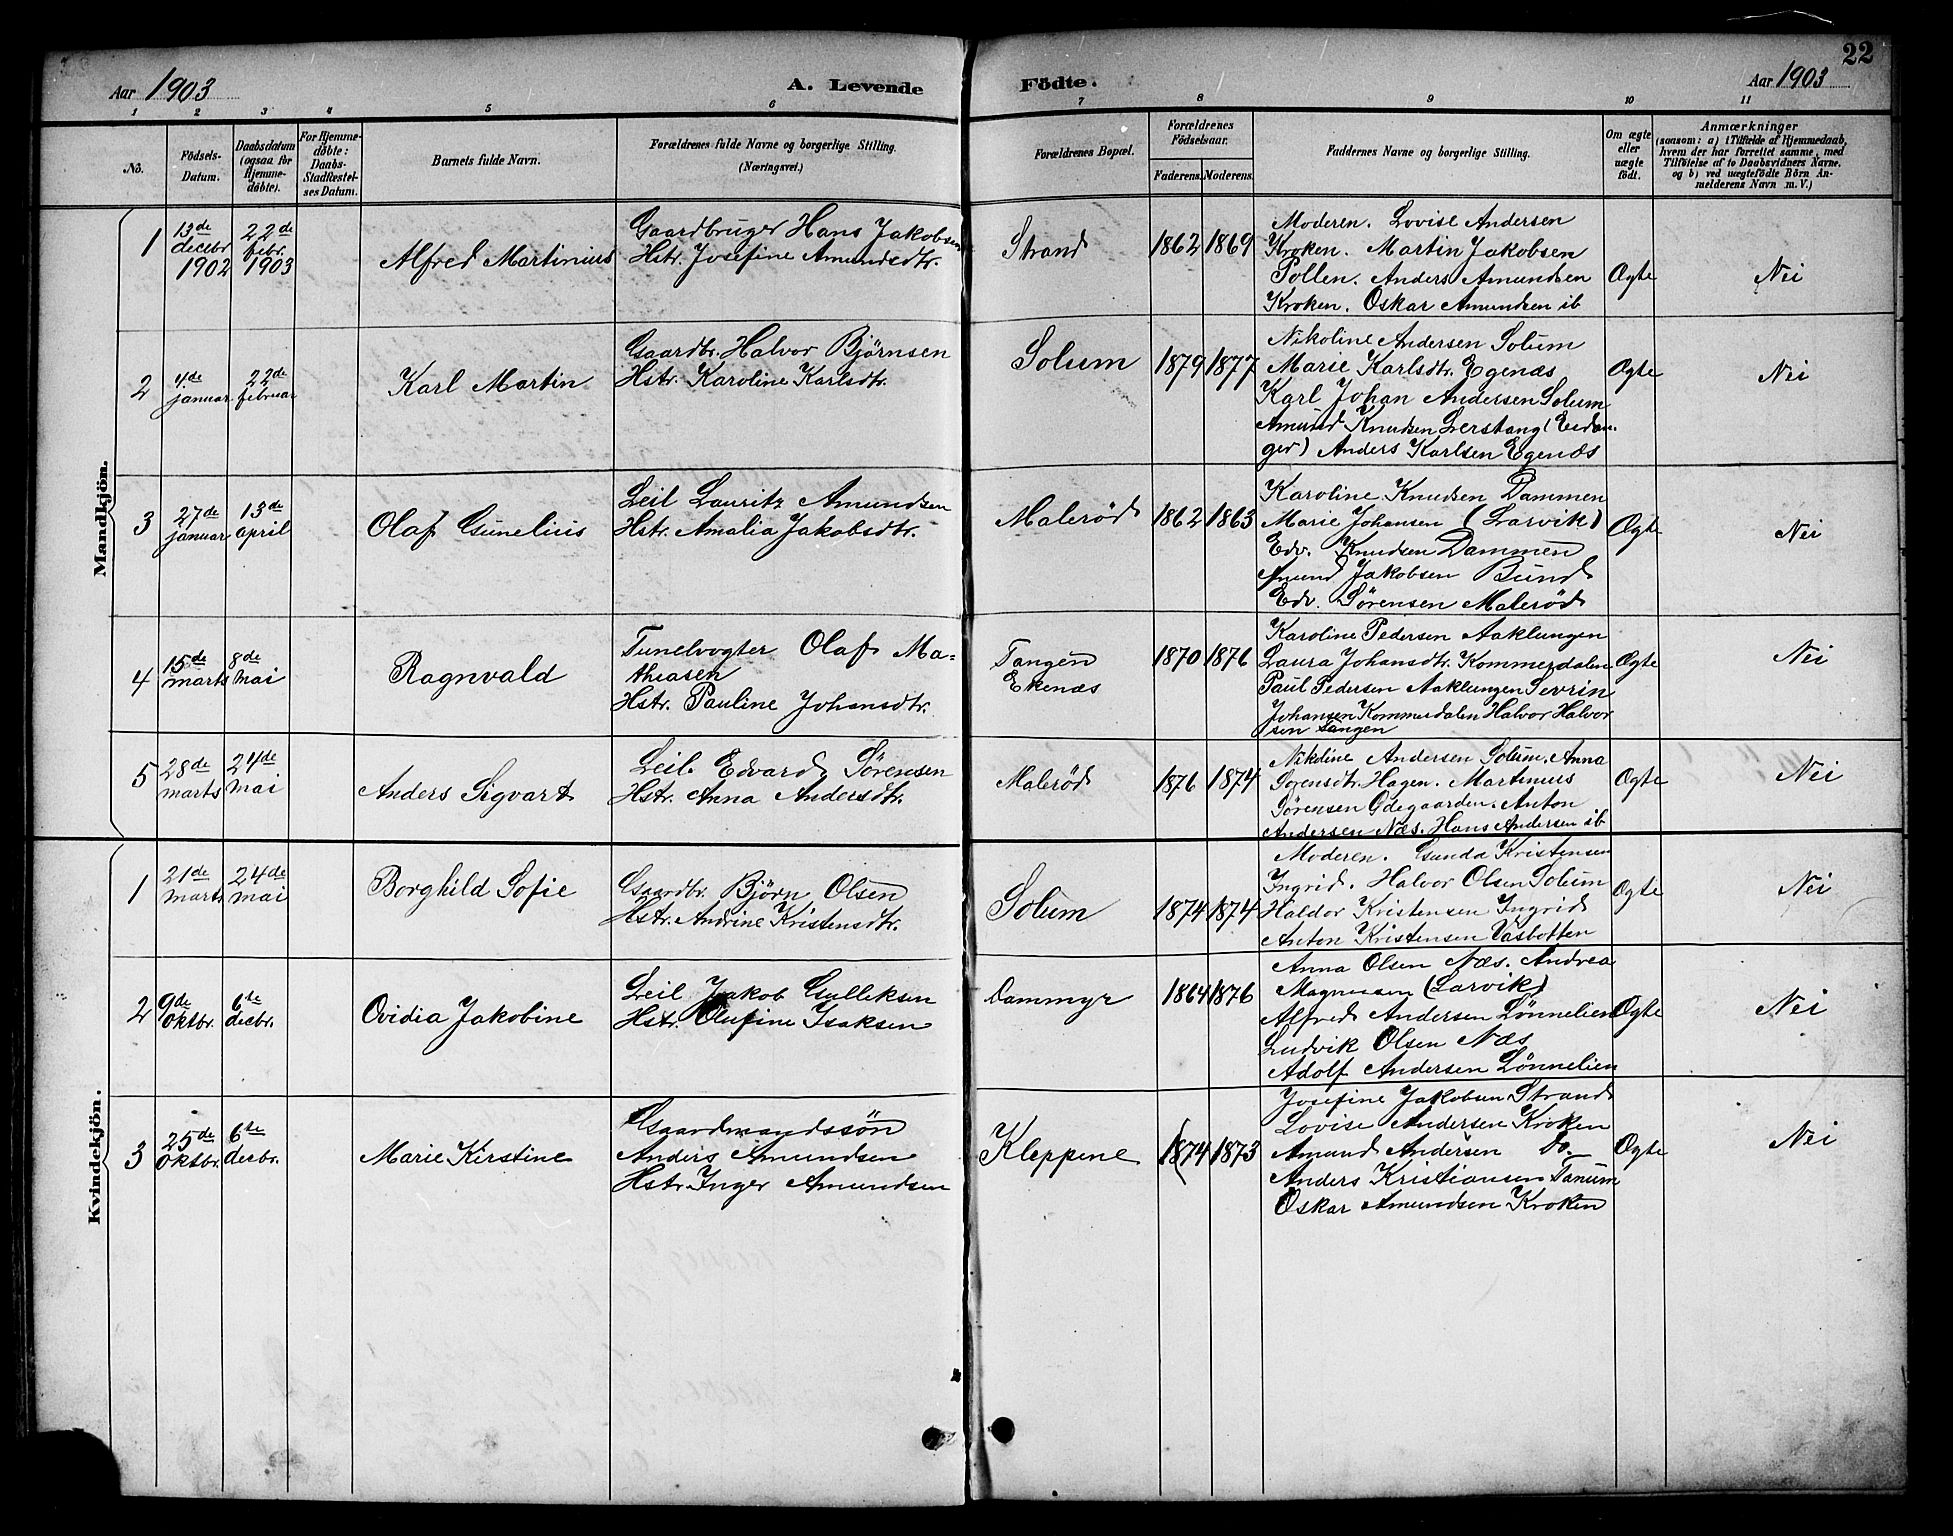 22
Aar 1903
A. Levende
Födte.
Aar 1903
1 2 3 4 5 6 7 8 9 10 11
No.
Födsels-
Datum.
Daabsdatum
(ogsaa for
Hjemme-
döbte).
For Hjemme-
döbte:
Daabs-
Stadfæstel-
ses Datum.
Barnets fulde Navn.
Forældrenes fulde Navne og borgerlige Stilling.
(Næringsvei.)
Forældrenes Bopæl.
Forældrenes
Födselsaar.
Faderens. Moderens.
Faddernes Navne og borgerlige Stilling.
Om ægte
eller
uægte
födt.
Anmærkninger
(saasom: a) i Tilfælde af Hjemmedaab,
hvem der har forrettet samme, med
Tilföielse af to Daabsvidners Navne,
og b) ved uægtefödte Börn An-
melderens Navn m. V.)
Mandkjön.
1
13de
decebr
1902
22de
febr.
1903
Alfred Martinius
Gaardbruger Hans Jakobsen
Hstr. Josefine Amundsdtr.
Strand
1862 1869
Moderen. Lovise Andersen
Kroken. Martin Jakobsen
Pollen. Anders Amundsen
Kroken. Oskar Amundsen ib
Ægte
Nei
2
4de
januar
22de
februar
Karl Martin
Gaardbr. Halvor Bjørnsen
Hstr. Karoline Karlsdtr.
Solum
1879 1877
Nikoline Andersen Solum
Marie Karlsdtr. Egenæs
Karl Johan Andersen Solum
Amund Knudsen Lerstang (Eidan-
ger) Anders Karlsen Egenæs
Ægte
Nei
3
27de
januar
13de
april
Olaf Gunelius
Leil Lauritz Amundsen
Hstr. Amalia Jakobsdtr.
Malerød
1862 1863
Karoline Knudsen Dammen
Marie Johansen (Larvik)
Edv. Knudsen Dammen
Amund Jakobsen Bund
Edv. Sørensen Malerød
Ægte
Nei
4
15de
marts
8de
mai
Ragnvald
Tunelvogter Olaf Ma-
thiasen
Hstr. Pauline Johansdtr.
Tangen
Ekenæs
1870 1876
Karoline Pedersen Aaklungen
Laura Johansdtr. Kommerdalen
Paul Pedersen Aaklungen Sevrin
Johansen Kommerdalen Halvor Halvor
sen Tangen
Ægte
Nei
5
28de
marts
24de
mai
Anders Sigvart
Leil. Edvard Sørensen
Hstr. Anna Andersdtr.
Malerød
1876 1874
Nikoline Andersen Solum. Anna
Sørensdtr. Hagen. Martinius
Sørensen Ødegaarden. Anton
Andersen Næs. Hans Andersen ib
Ægte
Nei
Kvindekjön.
1
21de
marts
24de
mai
Borghild Sofie
Gaardbr. Bjørn Olsen
Hstr. Andrine Kristensdtr.
Solum
1874 1874
Moderen. Gunda Kristensen
Ingrid. Halvor Olsen Solum
Haldor Kristensen Ingrid
Anton Kristensen Vasbotten
Ægte
Nei
2
9de
oktbr.
6te
decbr.
Ovidia Jakobine
Leil Jakob Gulliksen
Hstr. Olufine Isaksen
Dammyr
1864 1876
Anna Olsen Næs. Andrea
Magnussen (Larvik)
Alfred Andersen Lønnelien
Ludvik Olsen Næs
Adolf Andersen Lønnelien
Ægte
Nei
3
25de
oktbr.
6te
decbr.
Marie Kirstine
Gaardmandssön
Anders Amundsen
Hstr. Inger Amundsen
Kleppene
1874 1873
Josefine Jakobsen Strand
Lovise Andersen Kroken
Amund Andersen Do.
Anders Kristiansen Tanum
Oskar Amundsen Kroken
Ægte
Nei